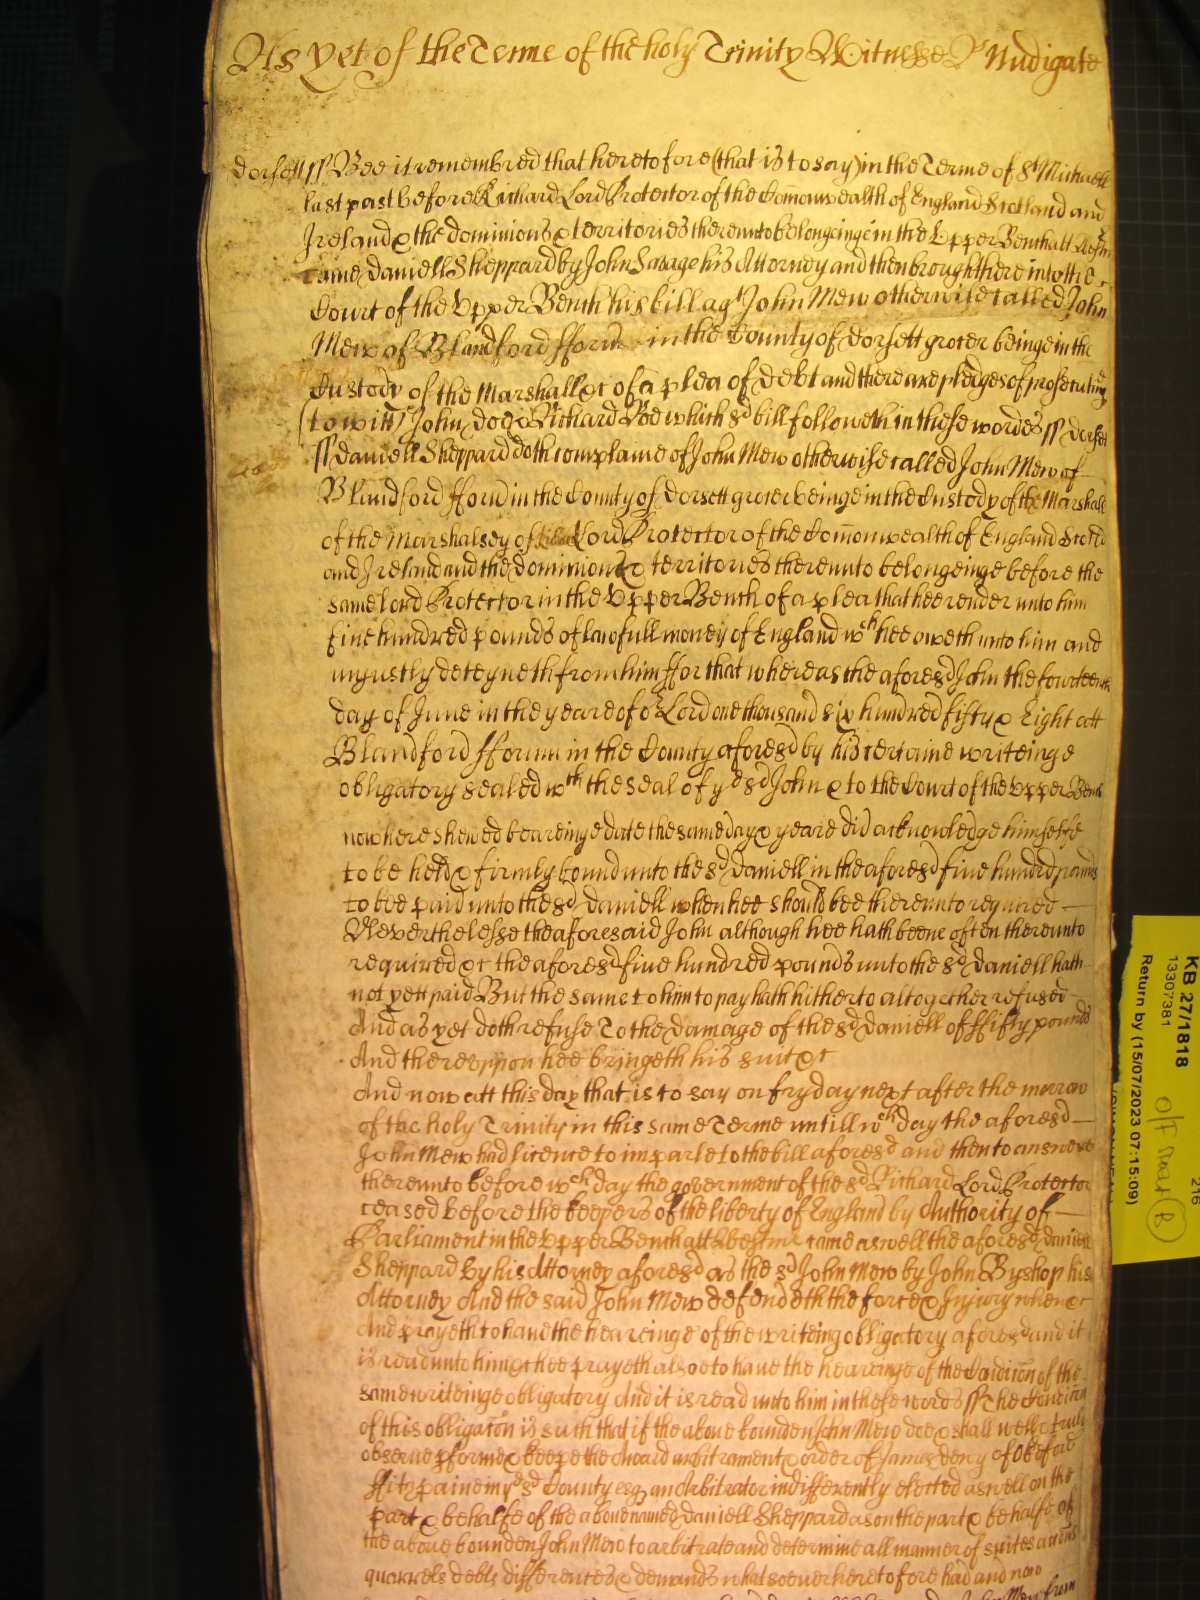 As yet of the Terme of the holy Trinity Witnesse R Nudigate
dorsett ss Bee it remembred that heretofore (that is to say) in the Terme of St Michaell
last past before Richard Lord Protector of the Comonwealth of England Scotland and
Ireland & the dominions & territories thereunto belongeinge in the Upper Bench att Westmr
came daniell Sheppard by John Savage his Attorney and then brought here into the
Court of the Upper Bench his bill agt John Mew otherwise called John
Mew of Blandford fforu in the County of dorsett grocer beinge in the
Custody of the Marshall &c of a plea of debt and there are pledges of prosecuting
(to witt) John doe & Richard Roe which sd bill followeth in these wordes ss dorset
ss daniell Sheppard doth complaine of John Mew otherwise called John Mew of
Blandford fforu in the County of dorsett grocer beinge in the Custody of the Marshall
of the Marshalsey of Lord Protector of the Comonwealth of England Scotld
and Ireland and the dominions & territories thereunto belongeinge before the
same lord Protector in the Upper Bench of a plea that hee render unto him
five hundred pounds of lawfull money of England wch hee oweth unto him and
unjustly deteyneth from him ffor that whereas the aforesd John the fourteenth
day of June in the yeare of or Lord one thousand six hundred fifty & Eight att
Blandford fforum in the County aforesd by his certaine writeinge
obligatory sealed wth the seal of ye sd John & to the Court of the Upper Bench
now here shewed beareinge date the same day & yeare did acknowledge himselfe
to be held & firmly bound unto the sd daniell in the aforesd five hundred pounds
to bee paid unto the sd daniell when hee should bee thereunto required
Neverthelesse the aforesaid John although hee hath beene often thereunto
required &c the aforesd five hundred pounds unto the sd daniell hath
not yett paid But the same to him to pay hath hitherto altogether refused
And as yet doth refuse To the damage of the sd daniell of ffifty pounds
And thereuppon hee bringeth his suit &c
And now att this day that is to say on fryday next after the morrow
of the holy Trinity in this same Terme untill wch day the aforesd
John Mew had licence to imparle to the bill aforesd and then to answere
thereunto before wch day the government of the sd Richard Lord Protector
ceased before the keepers of the liberty of England by Authority of
Parliament in the Upper Bench att Westmr came aswell the aforesd daniell
Sheppard by his Attorney aforesd as the sd John Mew by John Byshop his
Attorney And the said John Mew defendeth the force & Injury when &c
And prayeth to have the heareinge of the writeing obligatory aforesd and it
is read unto him & hee prayeth alsoe to have the heareinge of the Condicon of the
same writeinge obligatory And it is read unto him in these words ss The Condicon
of this obligacon is such that if the above bounden John Mew doe & shall well & truly
observe pforme & keepe the Award arbitrament & order of James deny of Okeford
ffitzpaine in ye sd County esqr an Arbitrator indifferently elected aswell on the
part & behalfe of the above named daniell Sheppard as on the part & behalfe of
the above bounden John Mew to arbitrate and determine all manner of suites accons
quarrels debts differences & demands whatsoever heretofore had and now
John Mew from
KB 27/1818
13307381
Return by (15/07/2023 07:15:09)
216